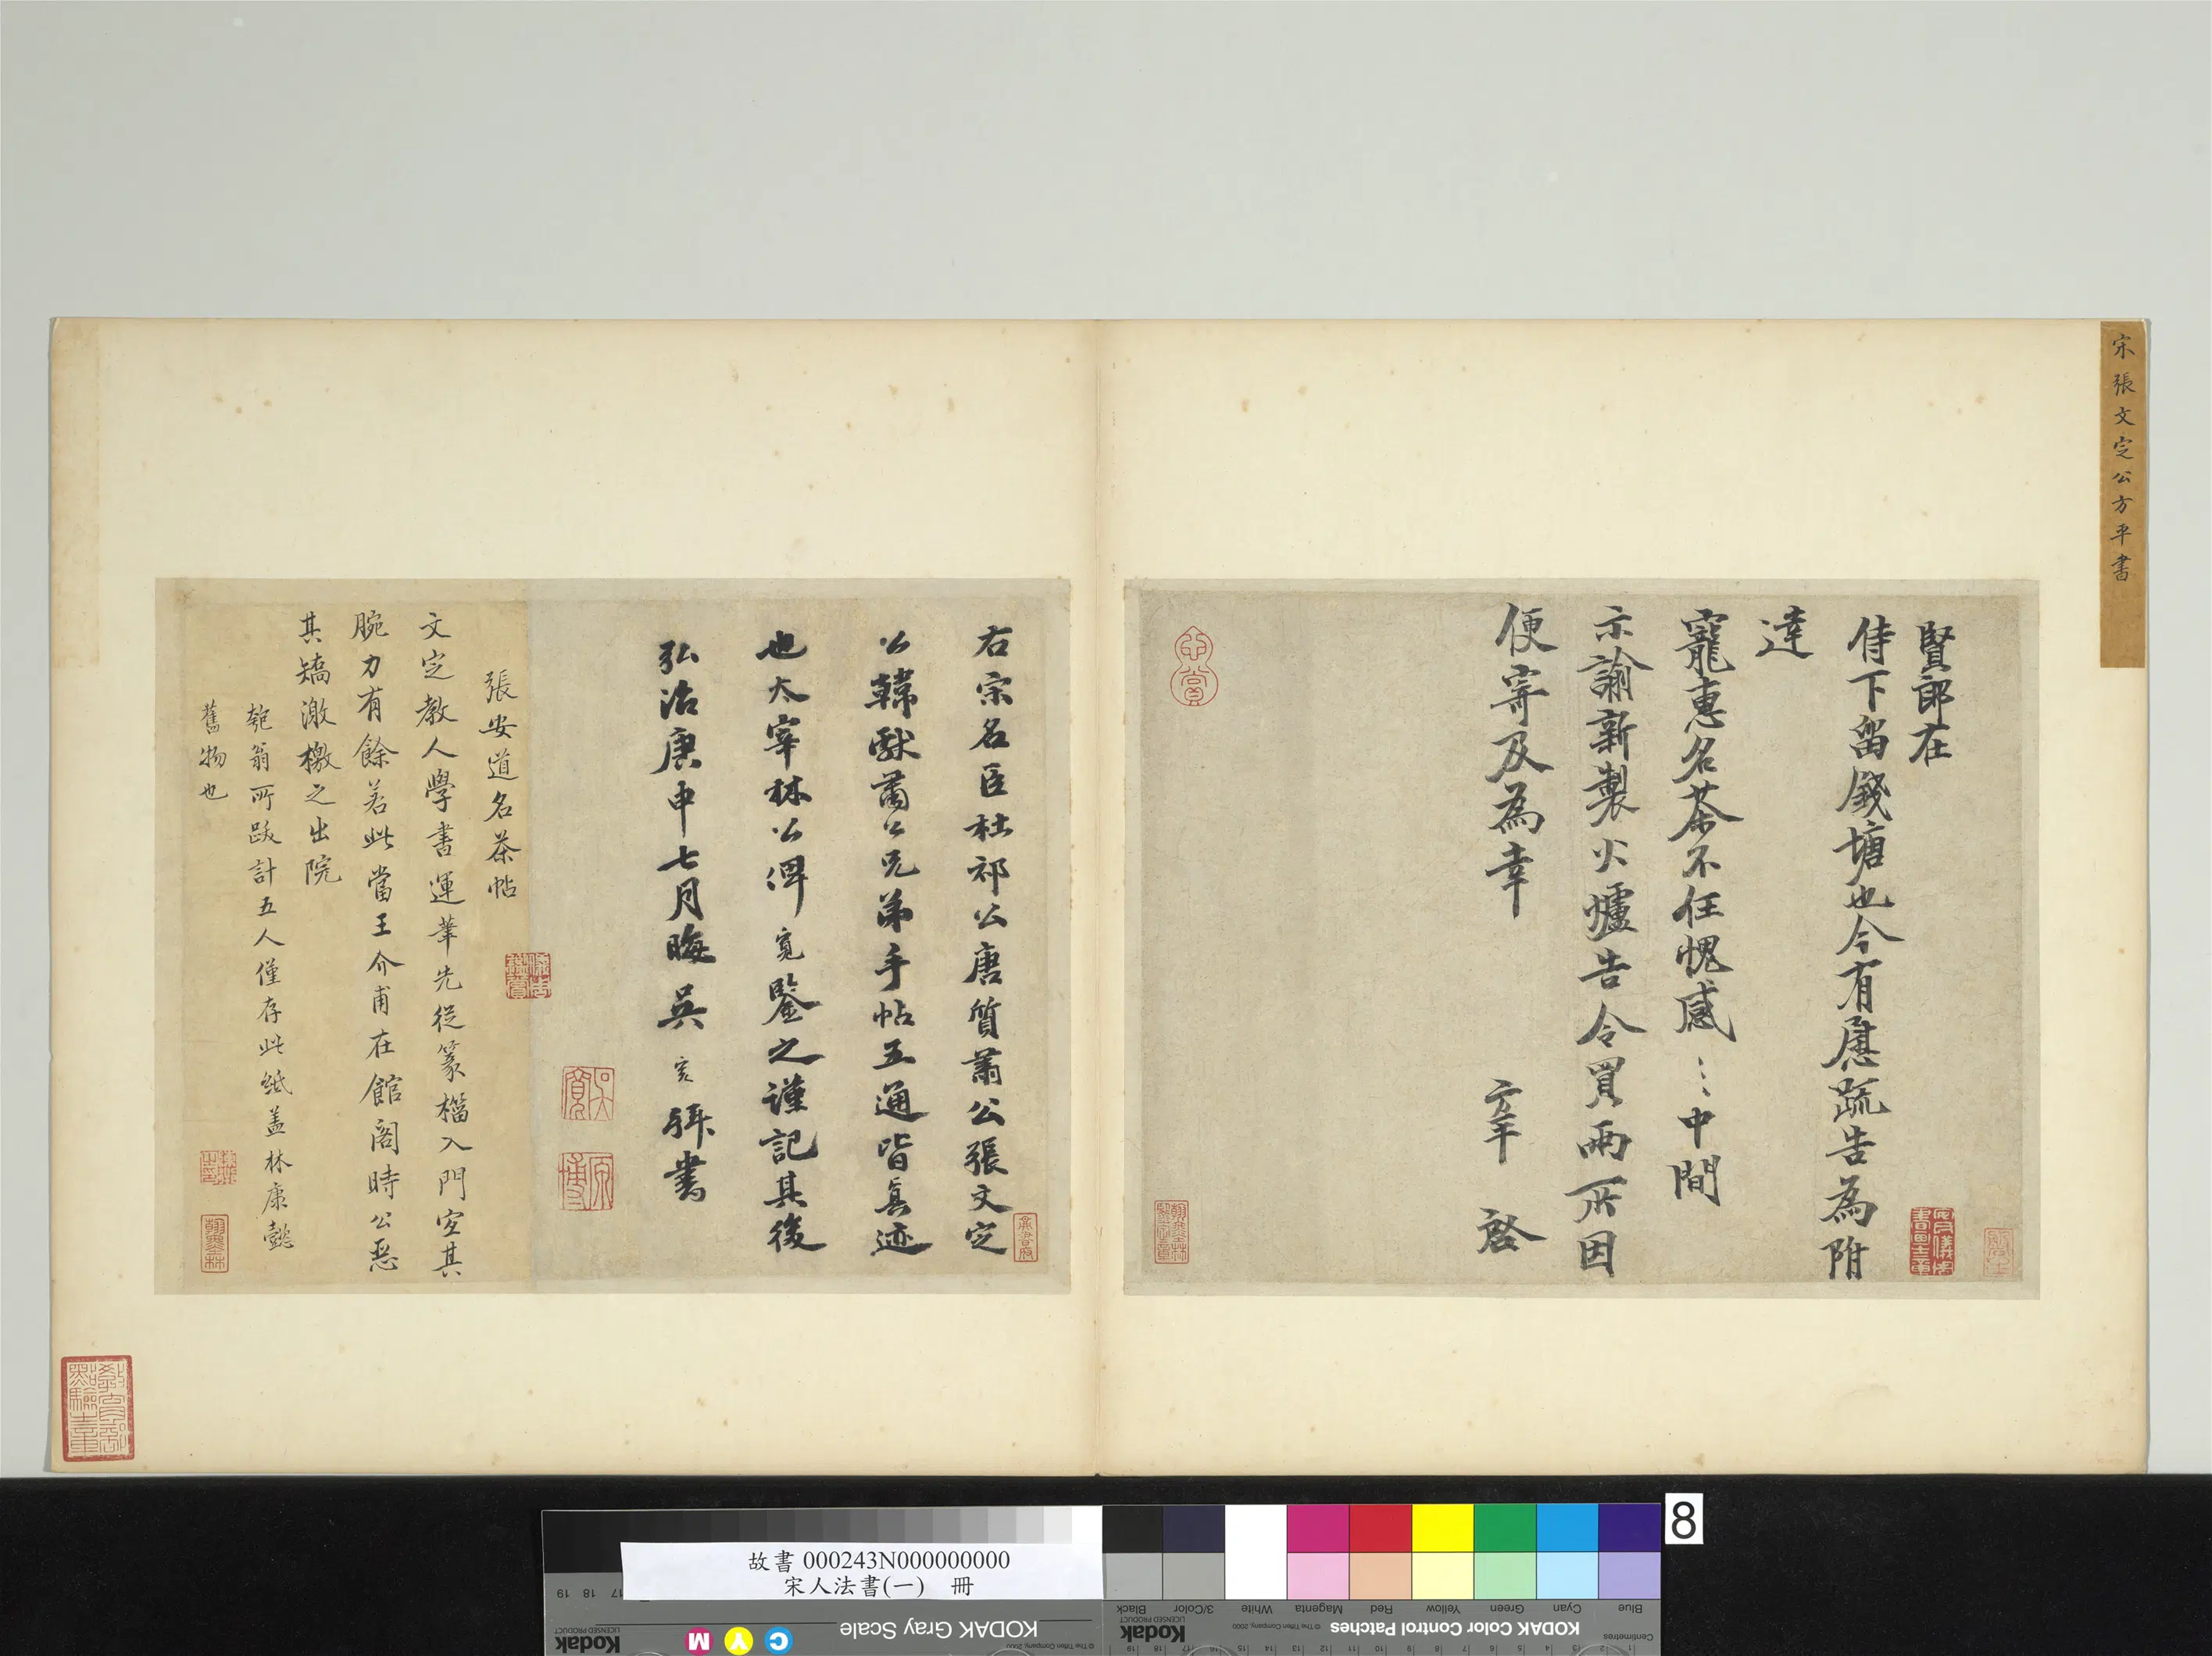 宋張文定公方平書
賢郎在
侍下留錢塘也今有慰疏告為附
達
寵惠名茶不任愧感〻〻中間
示諭新製火爐告令買兩所因
便寄及為幸
方平 啓
右宗名臣杜祁公唐質肅公張文定
公韓獻肅公兄弟手帖五通皆真迹
也太宰林公俾寬鑒之謹記其後
弘治庚申七月晦吳寬拜書
張安道名茶帖
文定教人學書運筆先從篆櫺入門宜其
腕力有餘若此當王介甫在館閣時公惡
其矯激檄之出院
匏翁所跋計五人僅存此紙蓋林康懿
舊物也
8
故書 000243N000000000
宋人法書(一) 冊
KODAK Gray Scale
C Y M
Kodak
LICENSED PRODUCT
© The Tiffen Company, 2000
KODAK Color Control Patches
© The Tiffen Company, 2000
Kodak
LICENSED PRODUCT
Centimetres
Blue Cyan Green Yellow Red Magenta White 3/Color Black